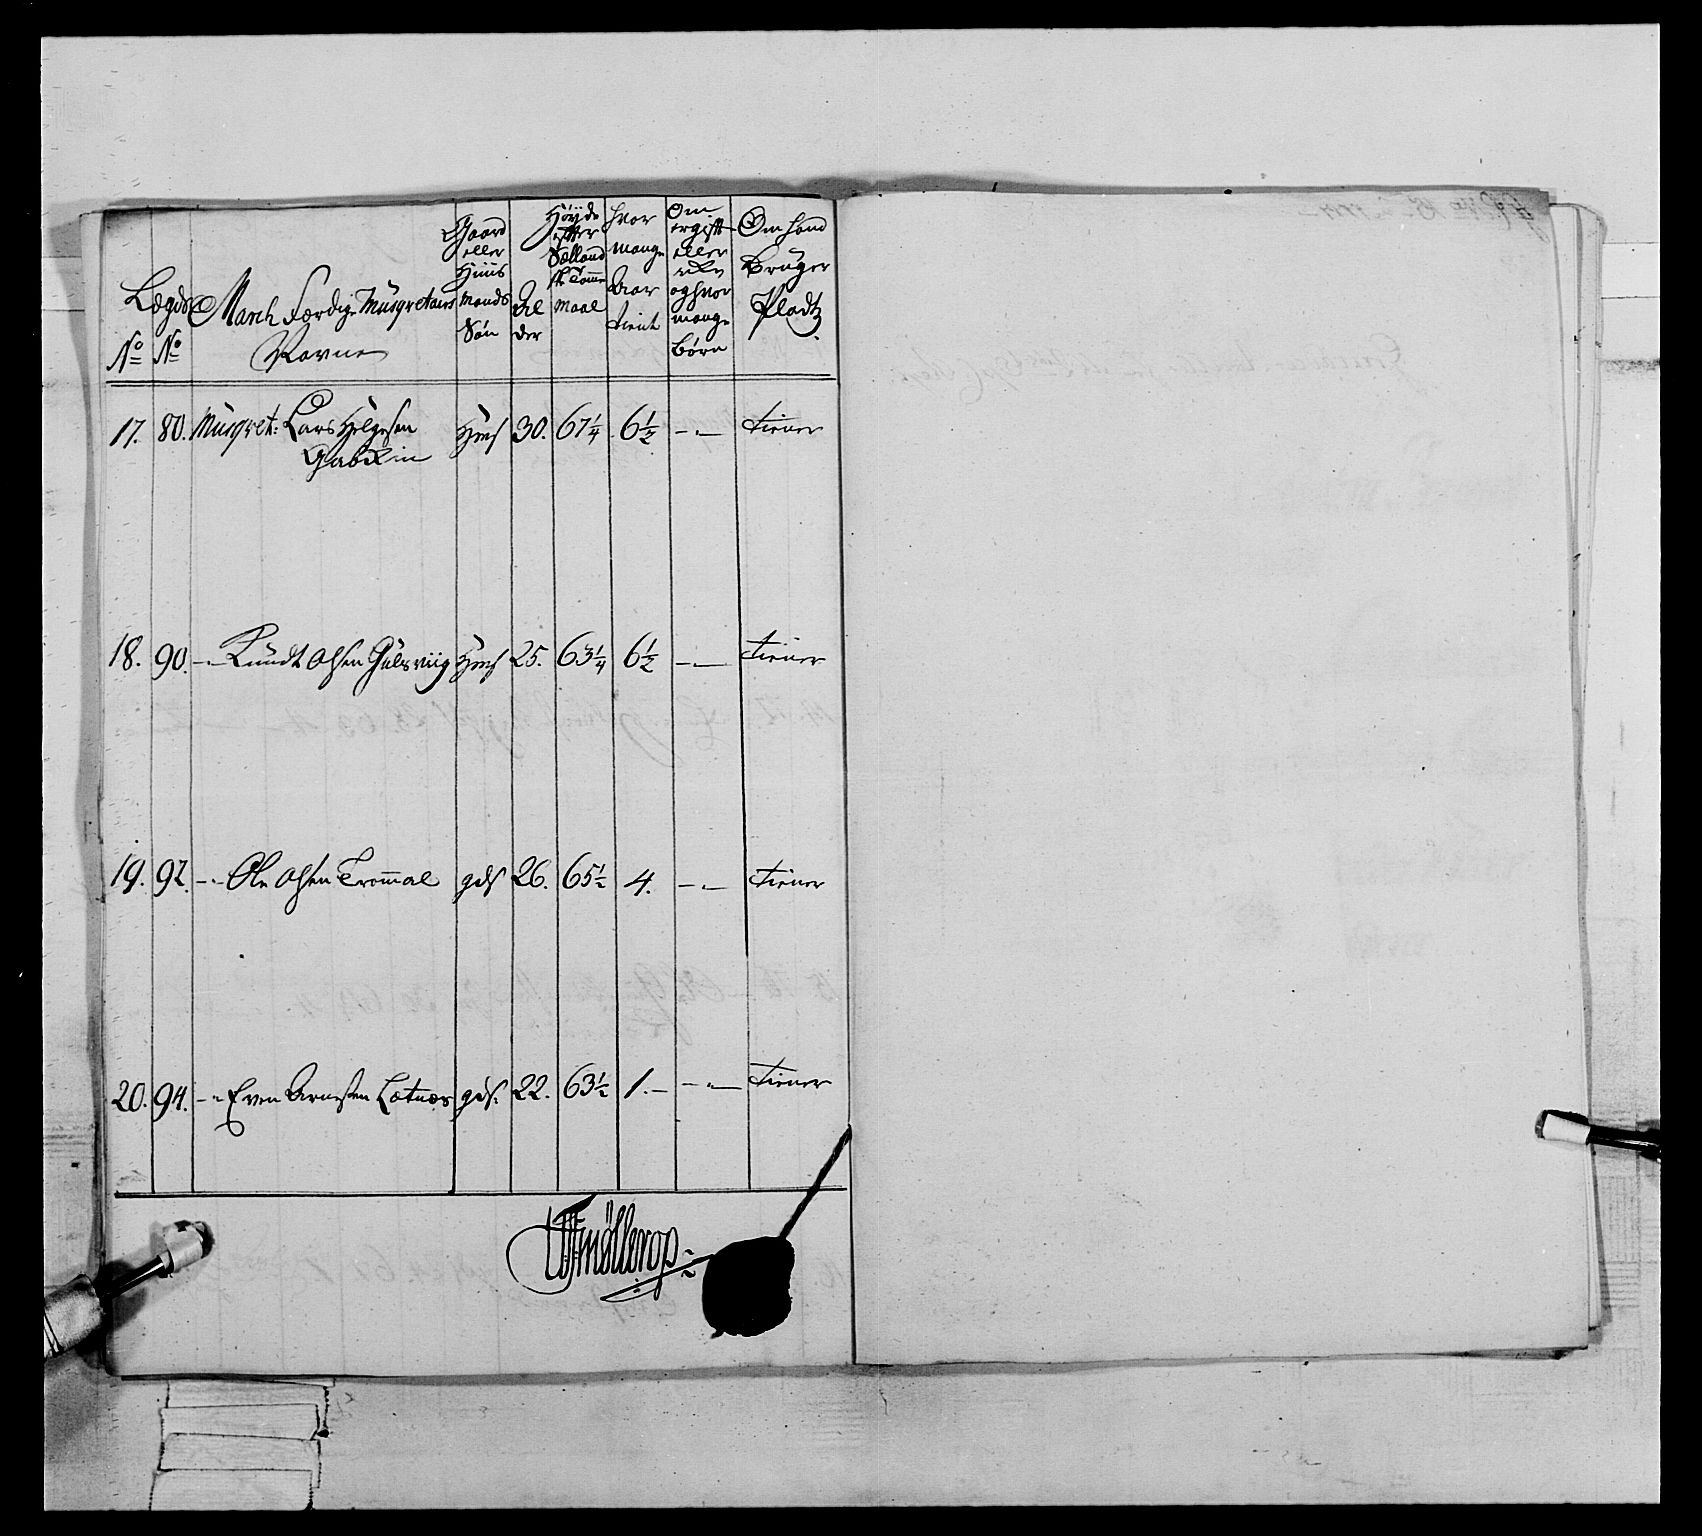 No
Lægds No
March Færdige Musqretairs Navne
Gaard eller Huus Mands Søn
Alder
Høyde efter Sællands Tomme Maal
Hvor mange Aar tient
Om er gift eller ikke og hvor mange Børn
Om hand Bruger Pladtz
17. 80. Musqret: Lars Helgesen Hms 30. 67 1/4 6 1/2 -"- tiener
18. 90. -"- Knudt Olsen Gulsviig Hms 25. 63 1/4 6 1/2 -"- tiener
19. 92. -"- Ole Olsen Trommal gds 26. 65 1/2 4. -"- tiener
20. 94. -"- Even Arnesen gds. 22. 63 1/2 1. - -"- tiener